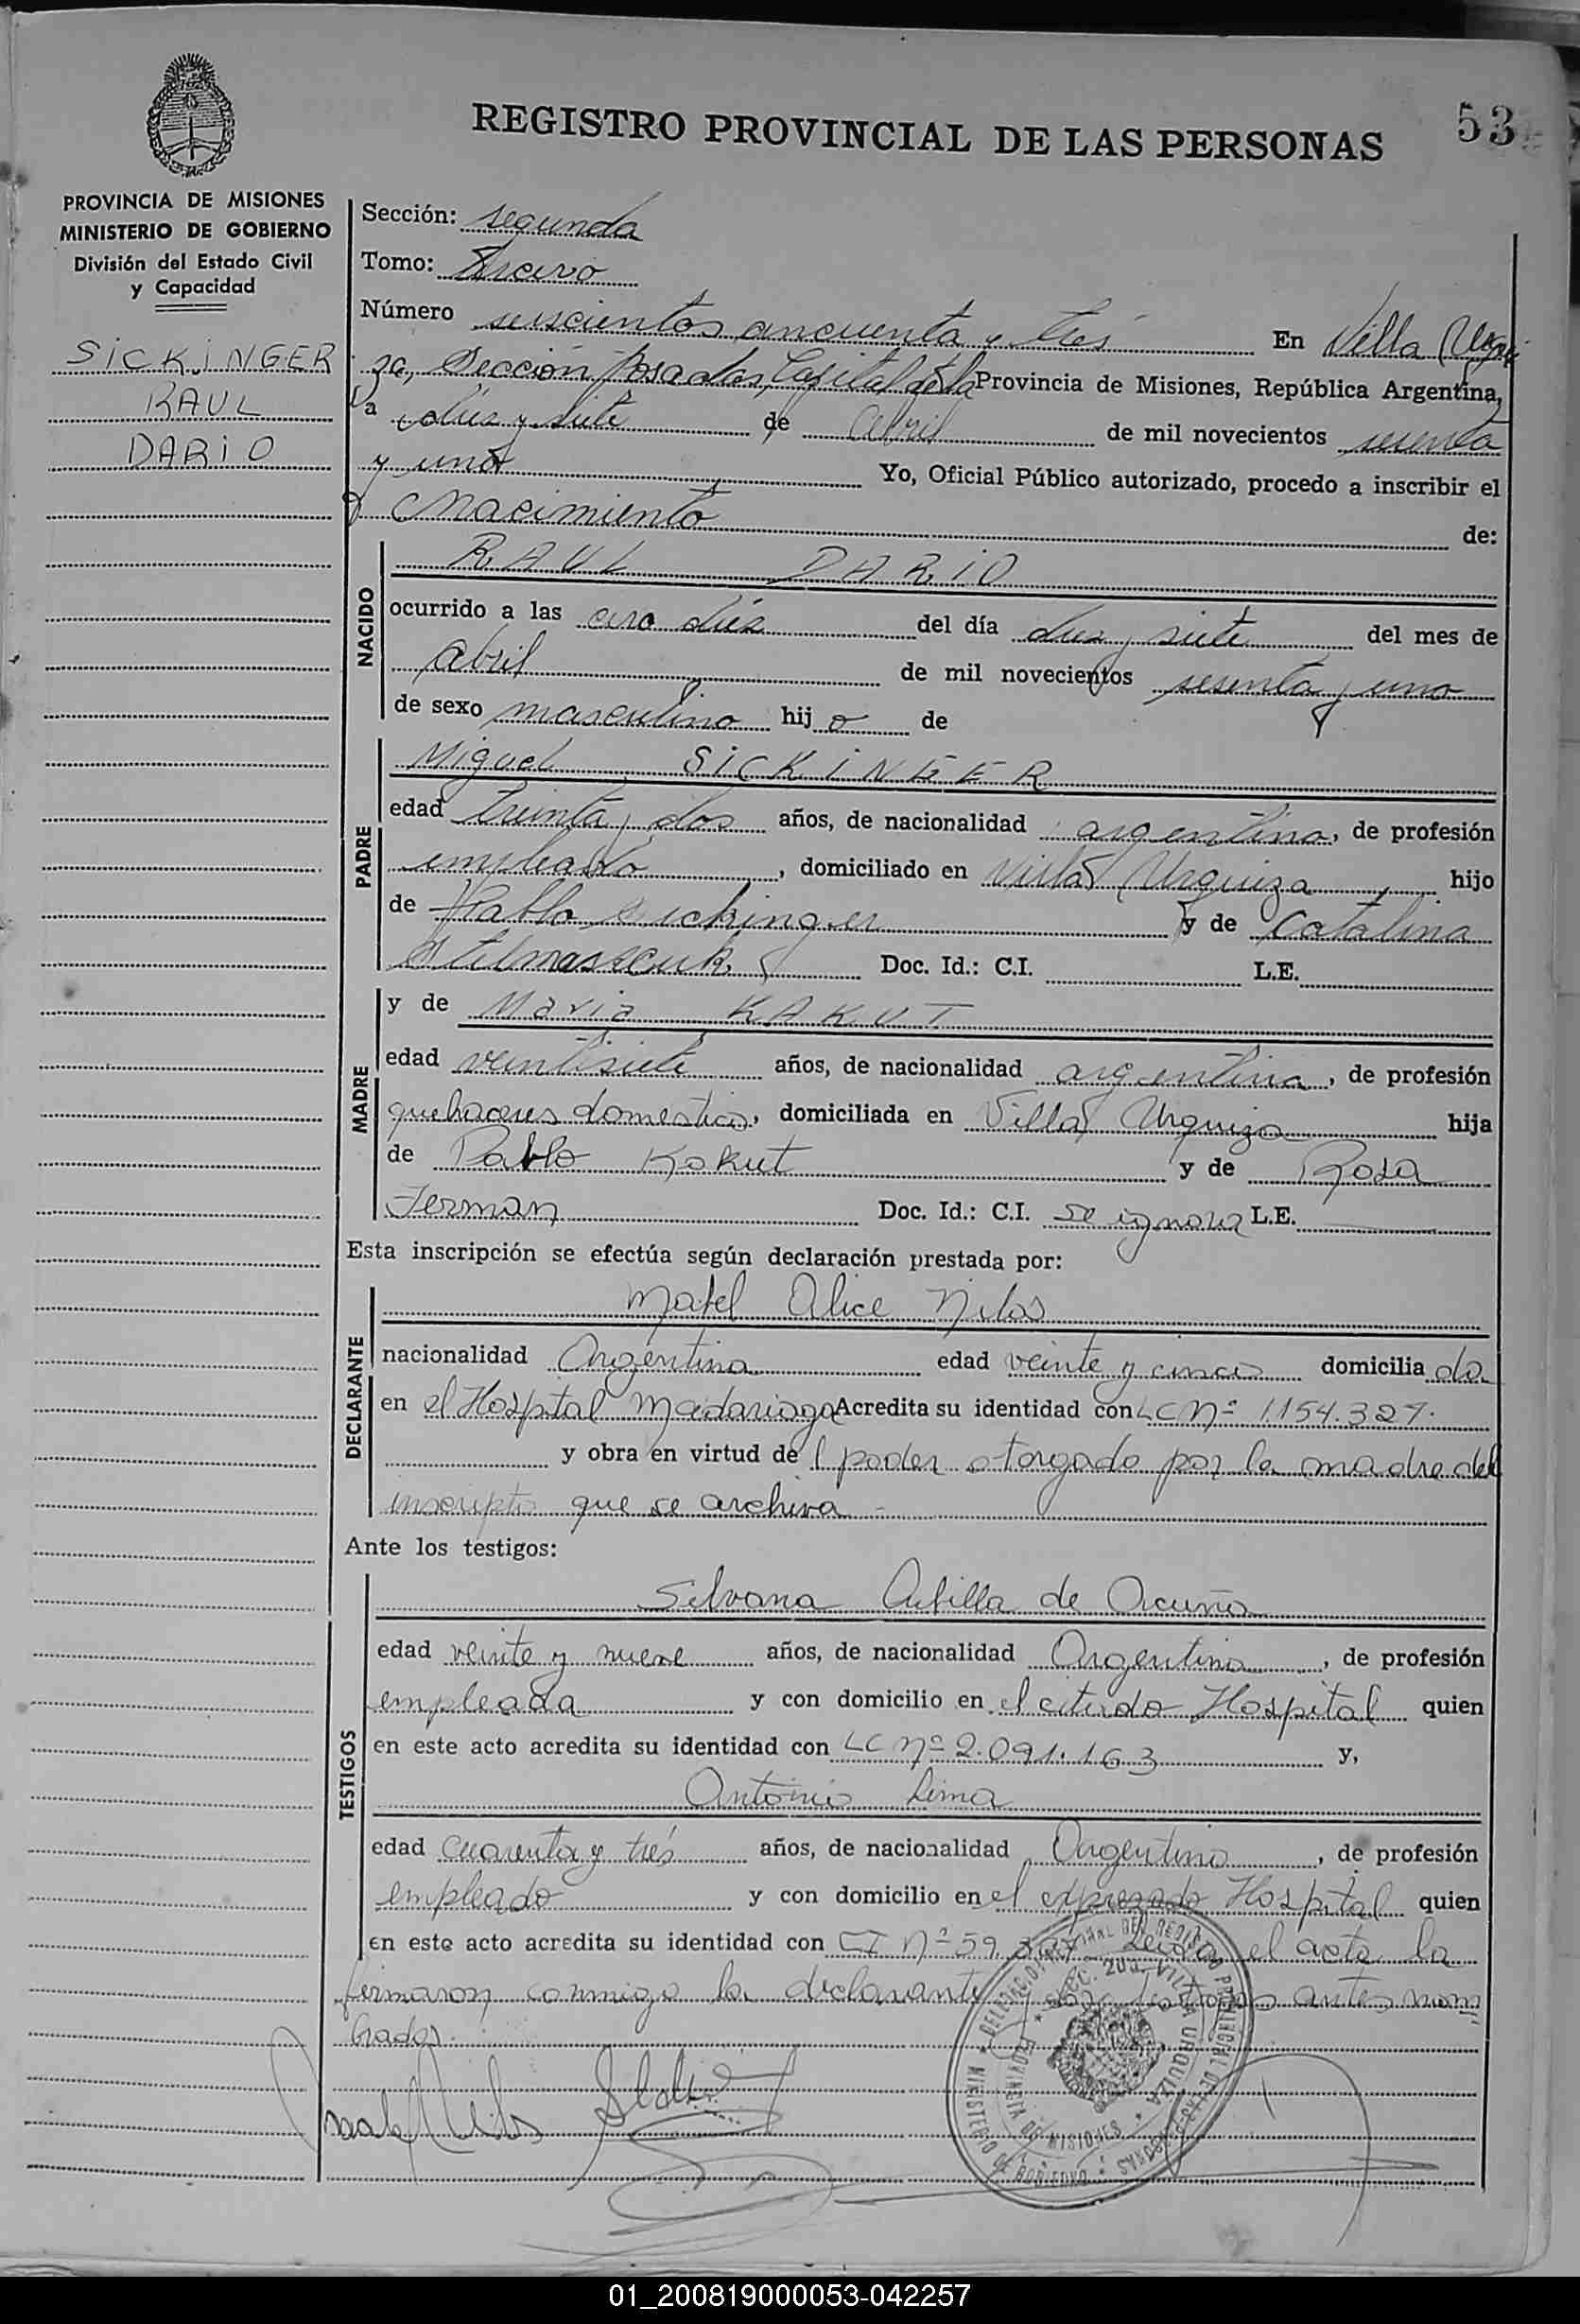 REGISTRO PROVINCIAL DE LAS PERSONAS
53
PROVINCIA DE MISIONES
MINISTERIO DE GOBIERNO
División del Estado Civil
y Capacidad
SICKINGER
RAUL
DARIO
Sección: segunda
Tomo: Tercero
Número seiscientos cincuenta y tres En Villa Urqui
za, Sección Posadas, Capital de la Provincia de Misiones, República Argentina,
a diez y siete de abril de mil novecientos sesenta
y uno Yo, Oficial Público autorizado, procedo a inscribir el
nacimiento de:
NACIDO
RAUL DARIO
ocurrido a las cero diez del día diez y siete del mes de
abril de mil novecientos sesenta y uno
de sexo masculino hijo de
PADRE
Miguel SICKINGER
edad treinta y dos años, de nacionalidad argentina, de profesión
empleado, domiciliado en Villa Urquiza, hijo
de Pablo Sickinger y de Catalina
Doc. Id.: C.I. L.E.
MADRE
y de Maria KAKUT
edad veintisiete años, de nacionalidad argentina, de profesión
quehaceres domestico, domiciliada en Villa Urquiza hija
de Pablo Kakut y de Rosa
Jerman Doc. Id.: C.I. se ignora L.E.
Esta inscripción se efectúa según declaración prestada por:
DECLARANTE
Mabel Alice Nilos
nacionalidad Argentina edad veinte y cinco domiciliada
en el Hospital Madariaga Acredita su identidad con LC Nº 1.154.327.
y obra en virtud del poder otorgado por la madre del
inscripto que se archiva
Ante los testigos:
TESTIGOS
Silvana de Acuña
edad veinte y nueve años, de nacionalidad Argentina, de profesión
empleada y con domicilio en el citado Hospital quien
en este acto acredita su identidad con LC Nº 2.091.163 y,
Antonio Lima
edad cuarenta y trés años, de nacionalidad Argentino, de profesión
empleado y con domicilio en el expresado Hospital quien
en este acto acredita su identidad con CI Nº 59. Leida el acta la
firmaron conmigo la declarante y los testigos antes nom
brados.
MINISTERIO DE GOBIERNO
PROVINCIA DE MISIONES
VILLA URQUIZA
01_200819000053-042257